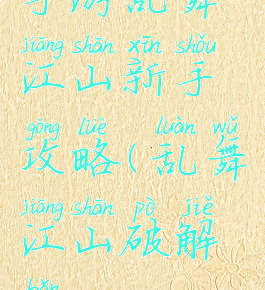 手游乱舞
jiāng shān xīn shǒu
江山新手
gōng lüè luàn wǔ
攻略(乱舞
jiāng shān pò jiě
江山破解
bǎn